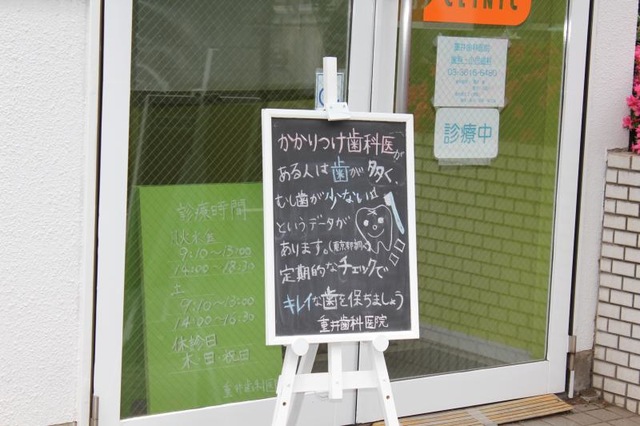 CLINIC
重井歯科医院
03-3616-6480
診療中
かかりつけ歯科医が
ある人は歯が多く、
むし歯が少ない
というデータが
あります。(東京都調べ)
定期的なチェックで
キレイな歯を保ちましょう
重井歯科医院
診療時間
9:10〜13:00
14:00〜18:30
土
9:10〜13:00
14:00〜16:30
休診日
木・日・祝日
重井歯科医院